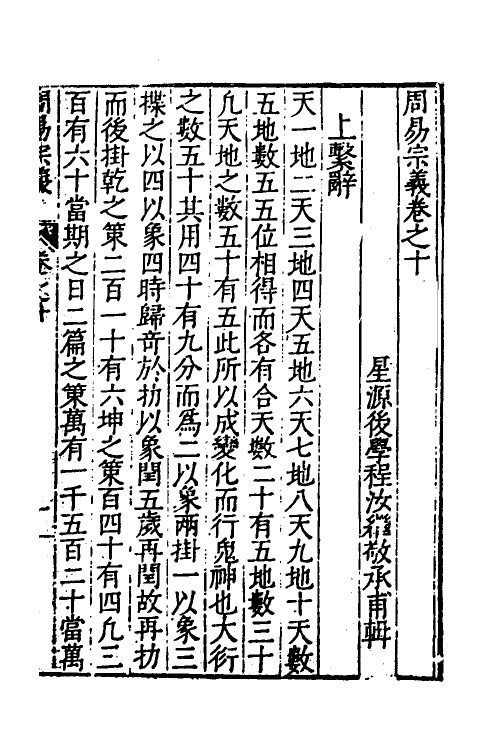 周易宗義卷之十
星源後學程汝繼敬承甫輯
上繫辭
天一地二天三地四天五地六天七地八天九地十天數
五地數五五位相得而各有合天數二十有五地數三十
凡天地之數五十有五此所以成變化而行鬼神也大衍
之數五十其用四十有九分而爲二以象兩掛一以象三
揲之以四以象四時歸奇於扐以象閏五歲再閏故再扐
而後掛乾之策二百一十有六坤之策百四十有四凡三
百有六十當期之日二篇之策萬有一千五百二十當萬
周易宗義 卷之十 一